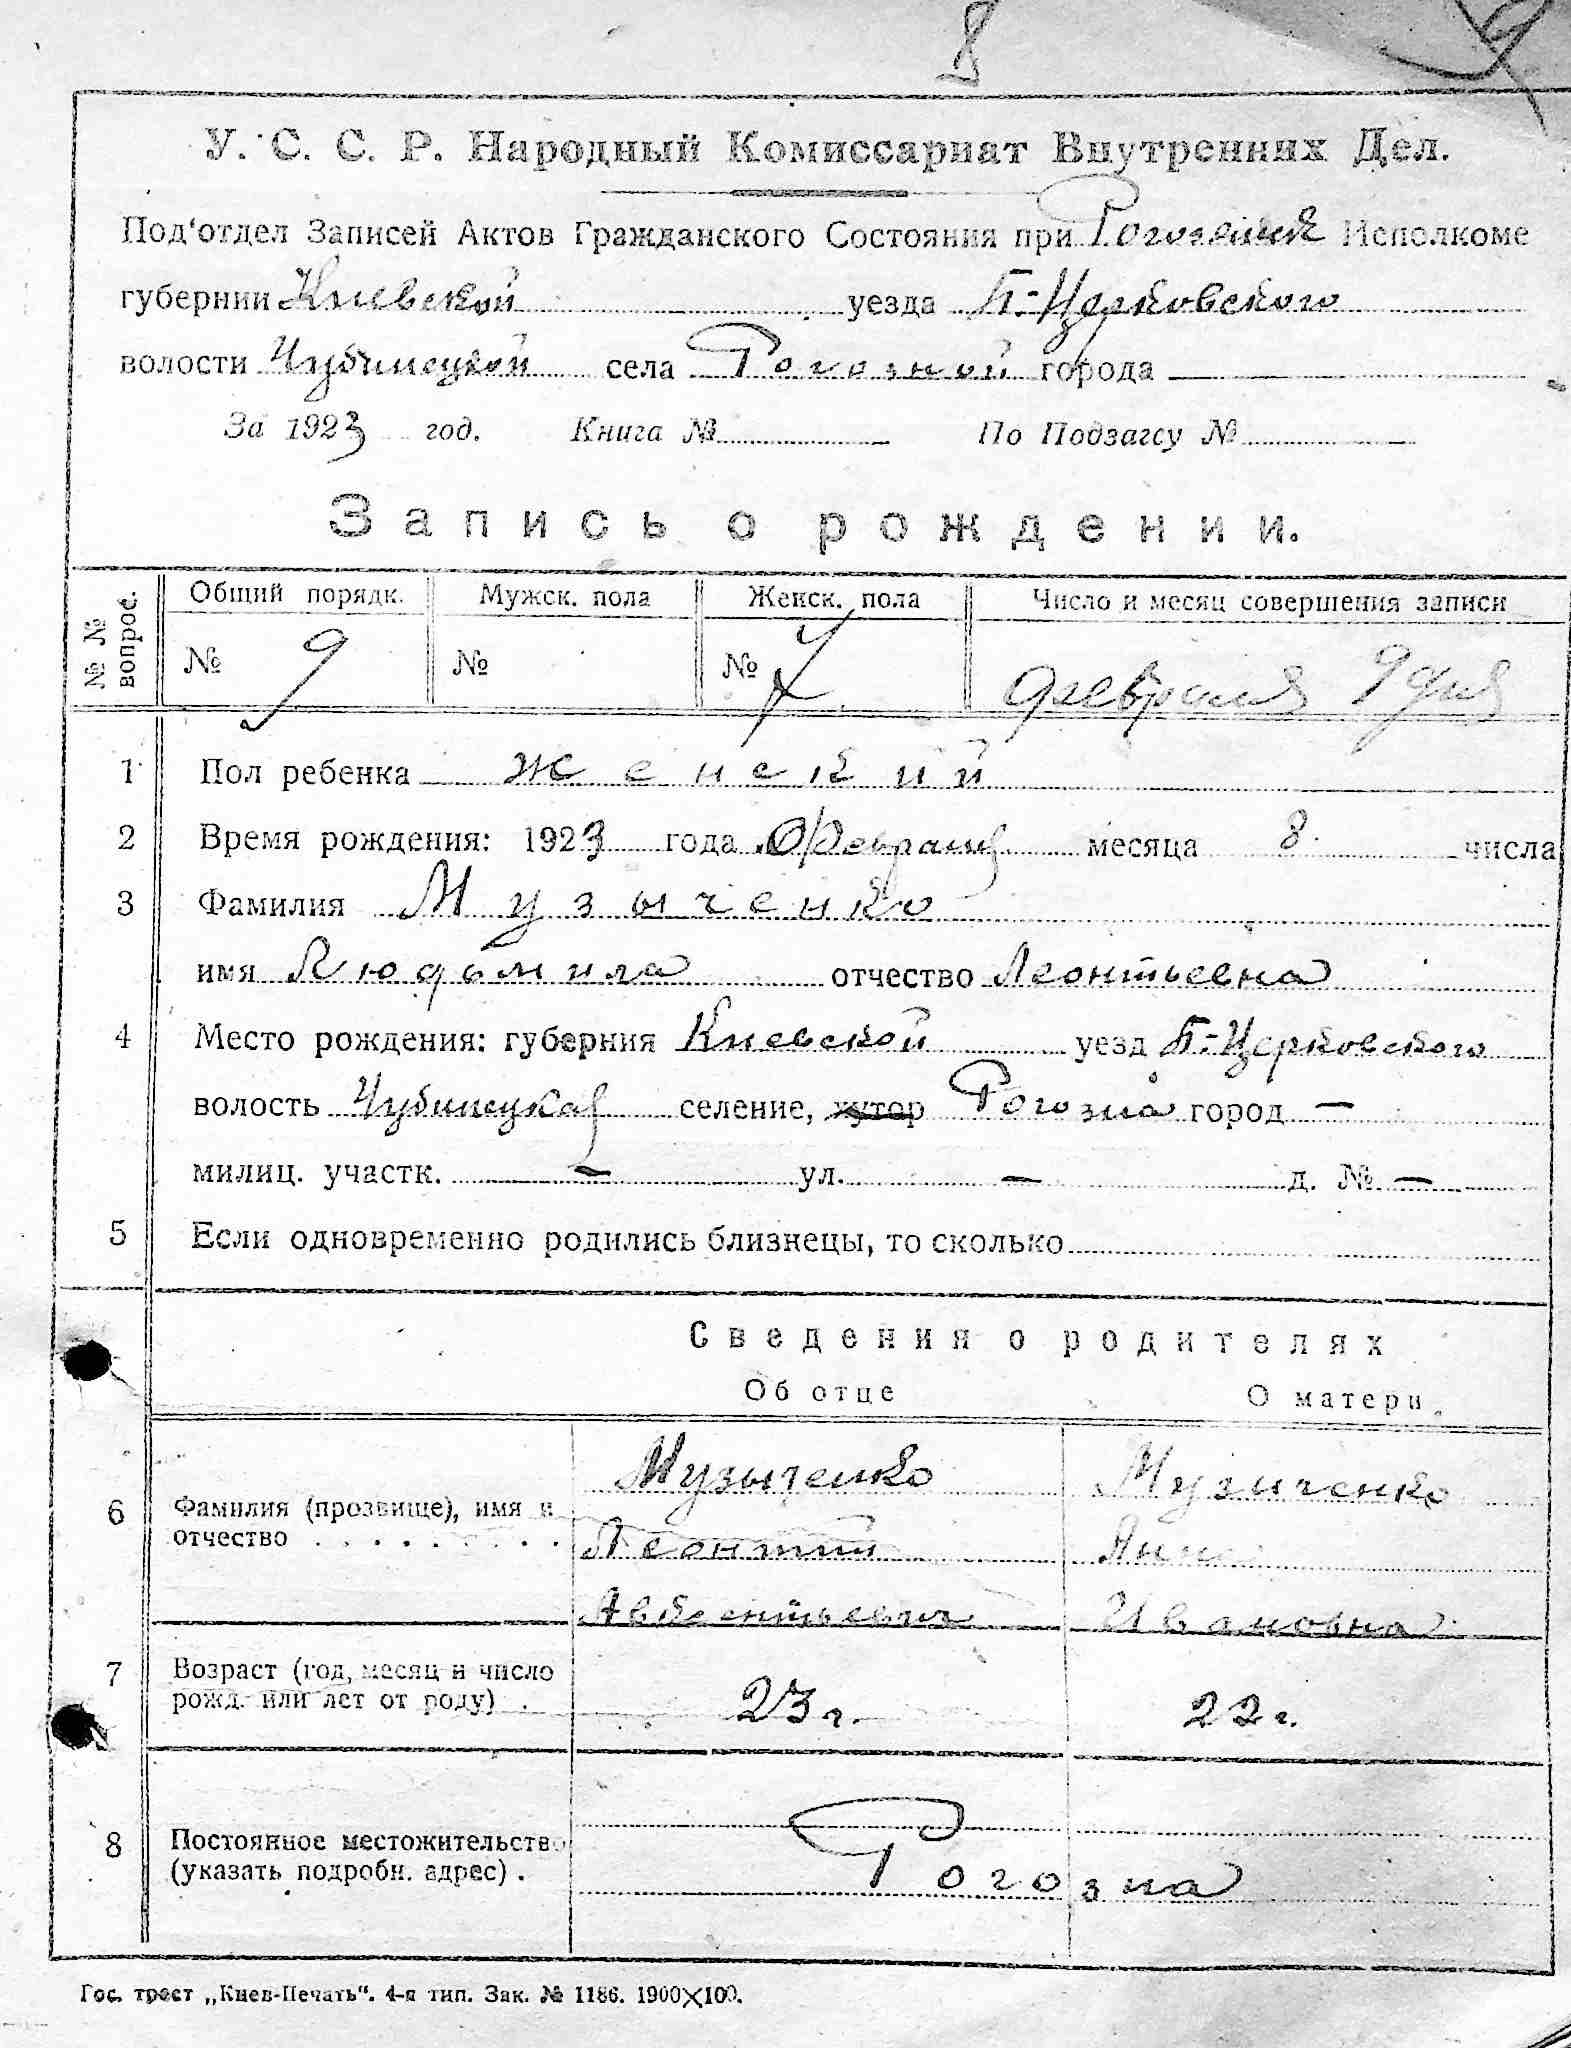 8
У. С. С. Р. Народный Комиссариат Внутренних Дел.
Под'отдел Записей Актов Гражданского Состояния при Исполкоме
губернии Киевской уезда Б-Церковского
волости Чубинецкой села Рогозной города —
За 1923 год. Книга № По Подзагсу №
Запись о рождении.
№ № вопрос. Общий порядк. Мужск. пола Женск. пола Число и месяц совершения записи
№ 9 № № 7 февраля 9 дня
1 Пол ребенка женский
2 Время рождения: 1923 года Февраля месяца 8 числа
3 Фамилия Музыченко
имя Людьмила отчество Леонтьевна
4 Место рождения: губерния Киевской уезд Б-Церковского
волость Чубинецкая селение, хутор Рогозна город —
милиц. участк. — ул. — д. № —
5 Если одновременно родились близнецы, то сколько
Сведения о родителях
Об отце О матери
6 Фамилия (прозвище), имя и отчество . . . . . . . . .
Музыченко Музиченко
Леонтий Анна
Авксентьевич Ивановна
7 Возраст (год, месяц и число рожд. или лет от роду) . 23 г. 22 г.
8 Постоянное местожительство (указать подробн. адрес) . Рогозна
Гос. трест „Киев-Печать“. 4-я тип. Зак. № 1186. 1900×100.